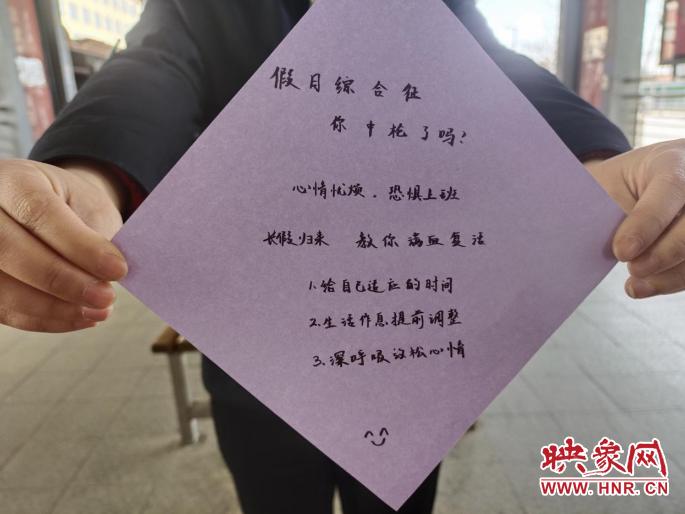 假月综合征
你中枪了吗?
心情忧烦.恐惧上班
长假归来 教你满血复活
1.给自己适应的时间
2.生活作息提前调整
3.深呼吸放松心情
映象网
WWW.HNR.CN